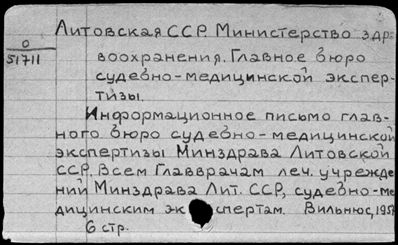 Литовская ССР. Министерство здра-
0
51711
воохранения. Главное бюро
судебно-медицинской экспер-
тизы.
Информационное письмо глав-
ного бюро судебно-медицинской
экспертизы Минздрава Литовской
ССР. Всем Главврачам леч. учрежде
ний Минздрава Лит. ССР, судебно-ме
дицинским экспертам. Вильнюс, 195
6 стр.